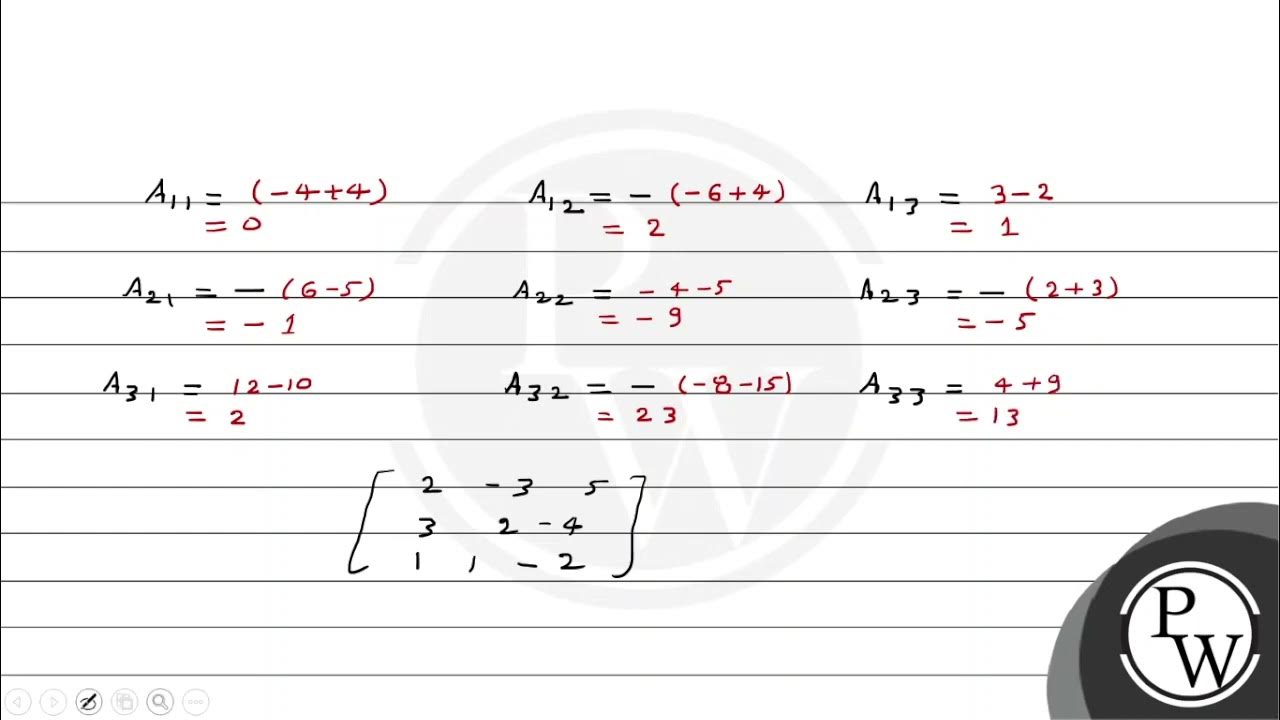 A11 = (-4+4) A12 = - (-6+4) A13 = 3-2
= 0 = 2 = 1
A21 = - (6-5) A22 = -4-5 A23 = - (2+3)
= -1 = -9 = -5
A31 = 12-10 A32 = - (-8-15) A33 = 4+9
= 2 = 23 = 13
2 -3 5
3 2 -4
1 1 -2
P
W